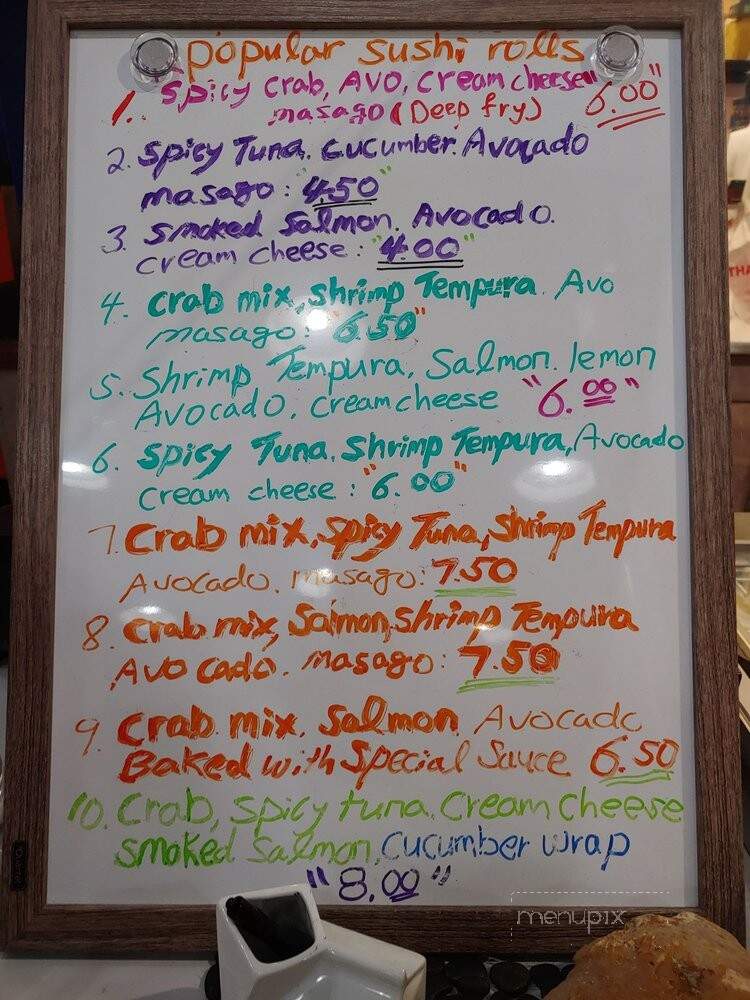 popular sushi rolls
1. Spicy crab, Avo, cream cheese "6.00"
masago (Deep fry)
2. Spicy Tuna. Cucumber. Avocado
masago: "4.50"
3. Smoked Salmon. Avocado.
cream cheese: "4.00"
4. Crab mix, Shrimp Tempura. Avo
masago: "6.50"
5. Shrimp Tempura, Salmon. lemon
Avocado, cream cheese "6.00"
6. Spicy Tuna, Shrimp Tempura, Avocado
cream cheese: "6.00"
7. Crab mix, Spicy Tuna, Shrimp Tempura
Avocado. masago: 7.50
8. Crab mix, Salmon, Shrimp Tempura
Avocado. masago: 7.50
9. Crab mix. Salmon Avocado
Baked with Special Sauce 6.50
10. Crab, Spicy tuna. Cream Cheese
smoked Salmon, Cucumber wrap
"8.00"
menupix